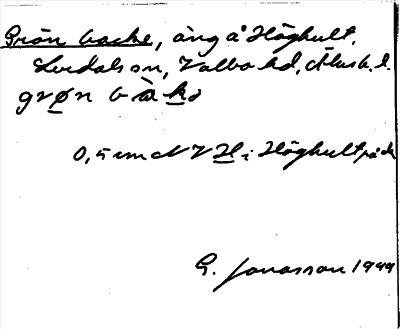 Grön backe, äng å Höghult,
Lerdals sn, Valbo hd, Älvsb. l.
grøn bàkə
0,5 cm N V H i Höghult på ek
G. Jonasson 1999